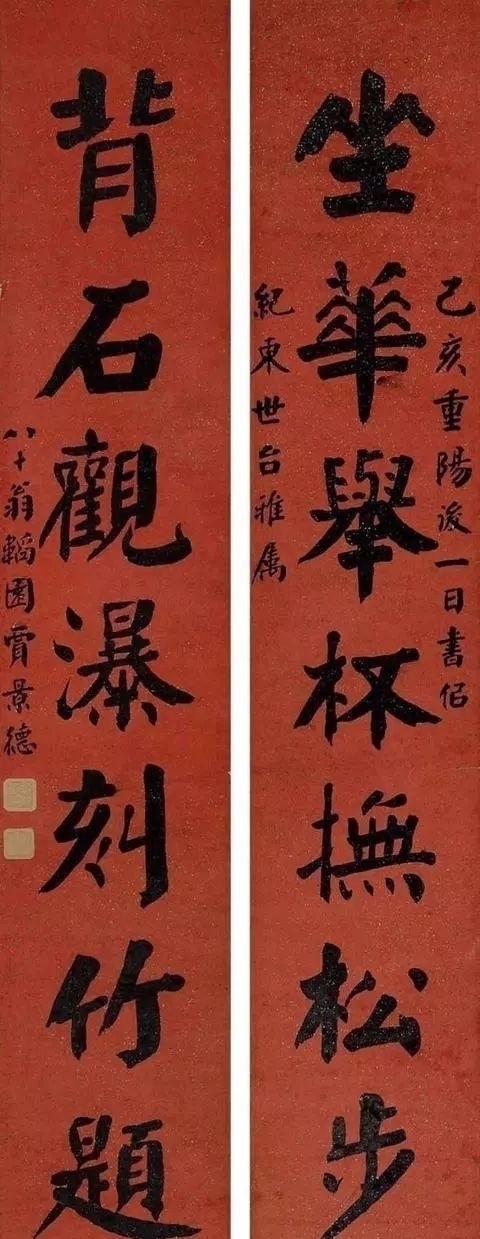 己亥重陽後一日書佀
坐華舉杯撫松步
紀東世台雅屬
背石觀瀑刻竹題
八十翁韜園賈景德